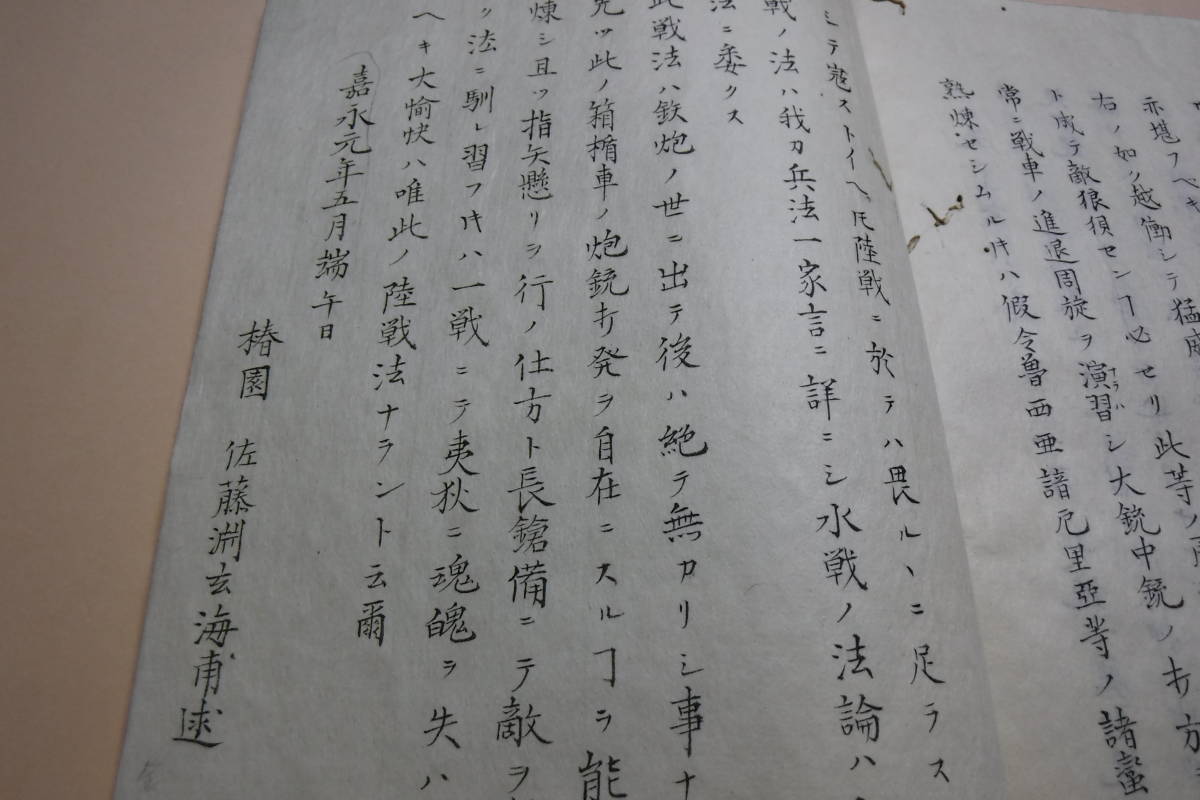 亦堪フヘキ
右ノ如ク越働シテ猛
ト成テ敵狼狽センヿ必セリ此等ノ
常ニ戦車ノ進退周旋ヲ演習シ大銃中銃ノ打方
ナラハ
熟煉セシムル𪜈ハ假令魯西亜諳厄里亞等ノ諸蛮
ミテ寇ストイヘ𪜈陸戦ニ於テハ畏ルヽニ足ラス
戦ノ法ハ我カ兵法一家言ニ詳ニシ水戦ノ法論ハ
法ニ委クス
此戦法ハ鉄炮ノ世ニ出テ後ハ絶テ無カリシ事ナ
先ツ此ノ箱楯車ノ炮銃打発ヲ自在ニスルヿヲ能
煉シ且ツ指矢懸リヲ行ノ仕方ト長鎗備ニテ敵ヲ
ノ法ニ馴レ習フ𪜈ハ一戦ニテ夷狄ニ魂魄ヲ失ハ
ヘキ大愉快ハ唯此ノ陸戦法ナラント云爾
嘉永元年五月端午日
椿園 佐藤淵玄海甫述